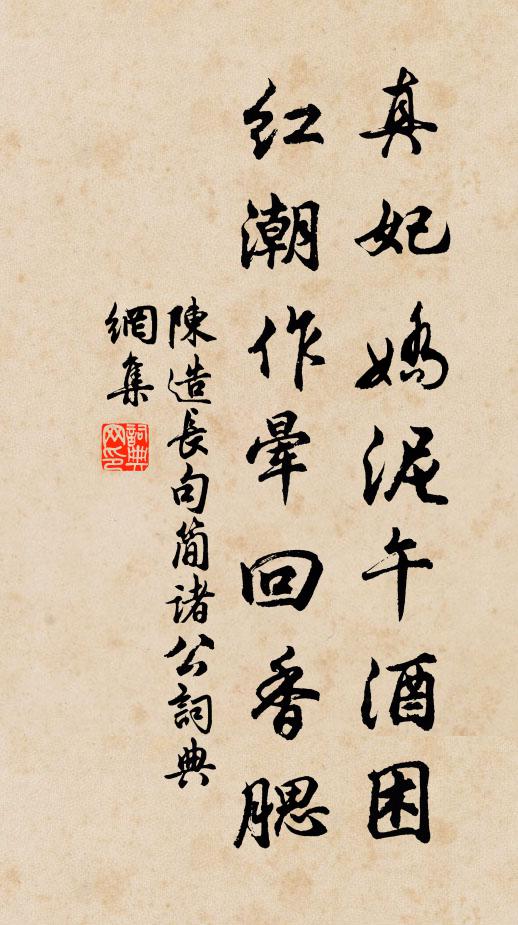 真妃嬌泥午酒困
紅潮作暈回香腮
陳造長句简诸公詞典
網集
詞典
网印